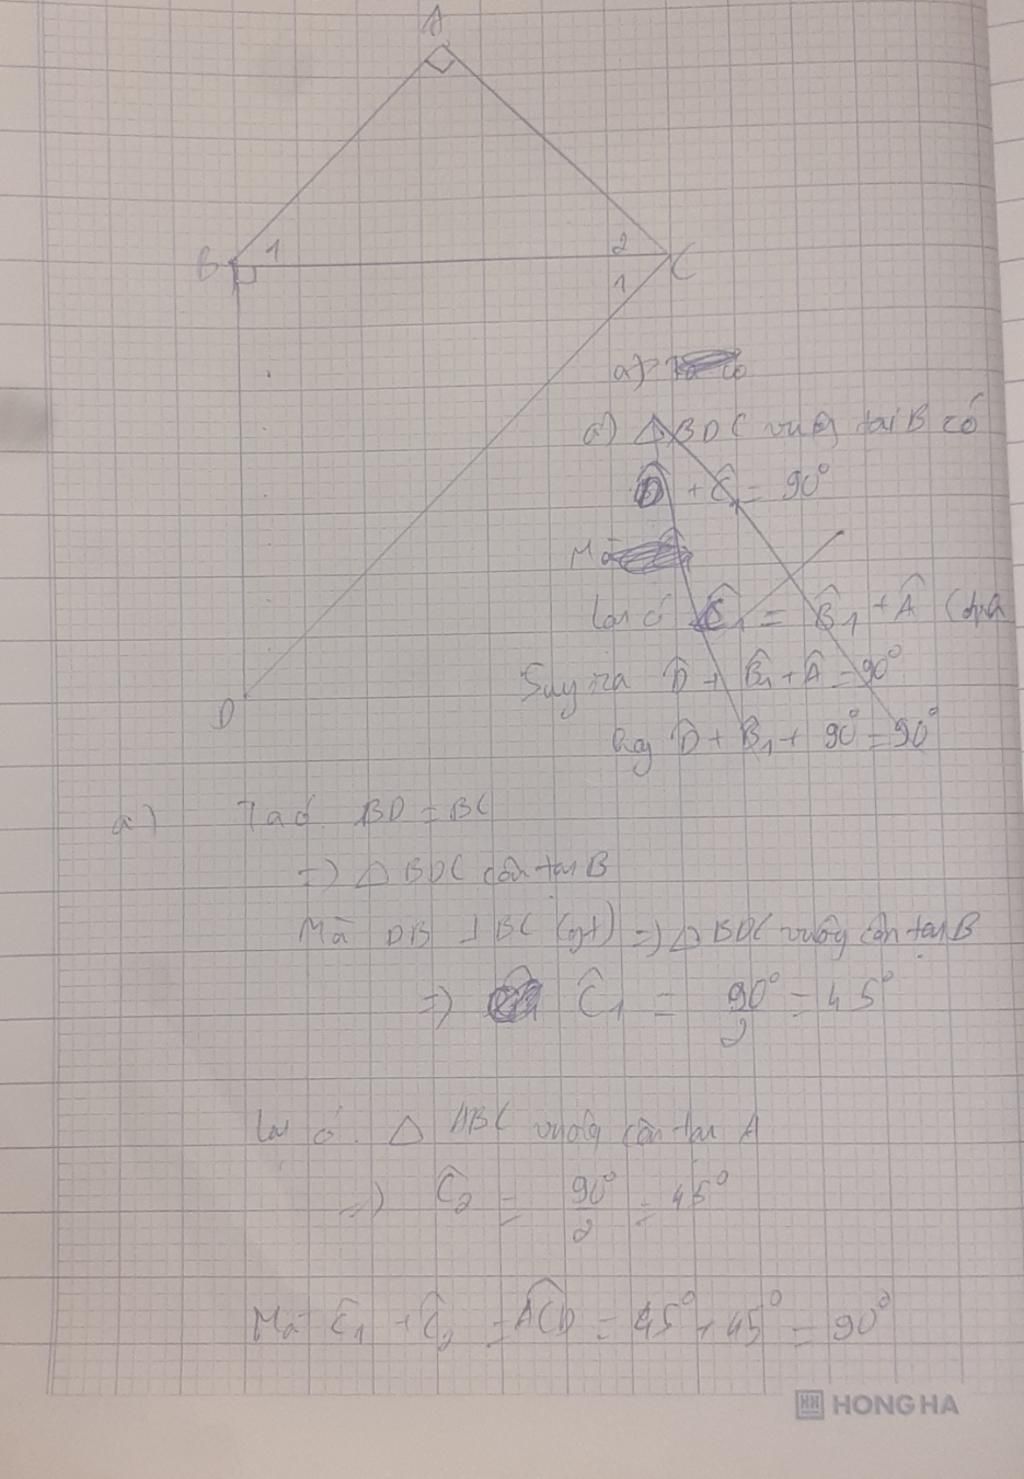 A
B 1 2 C
1
a)
a) △BDC vuôg tại B có
D̂ + Ĉ1 = 90°
Mà
lại có Ĉ1 = B̂1 + Â (
Suy ra D̂ + B̂1 + Â = 90°
hay D̂ + B̂1 + 90° = 90°
D
a) Ta có BD = BC
=> △BDC cân tại B
Mà DB ⊥ BC (gt) => △BDC vuôg cân tại B
=> Ĉ1 = 90°/2 = 45°
Lại có. △ABC vuôg cân tại A
=> Ĉ2 = 90°/2 = 45°
Mà Ĉ1 + Ĉ2 = ACD̂ = 45° + 45° = 90°
HONG HA